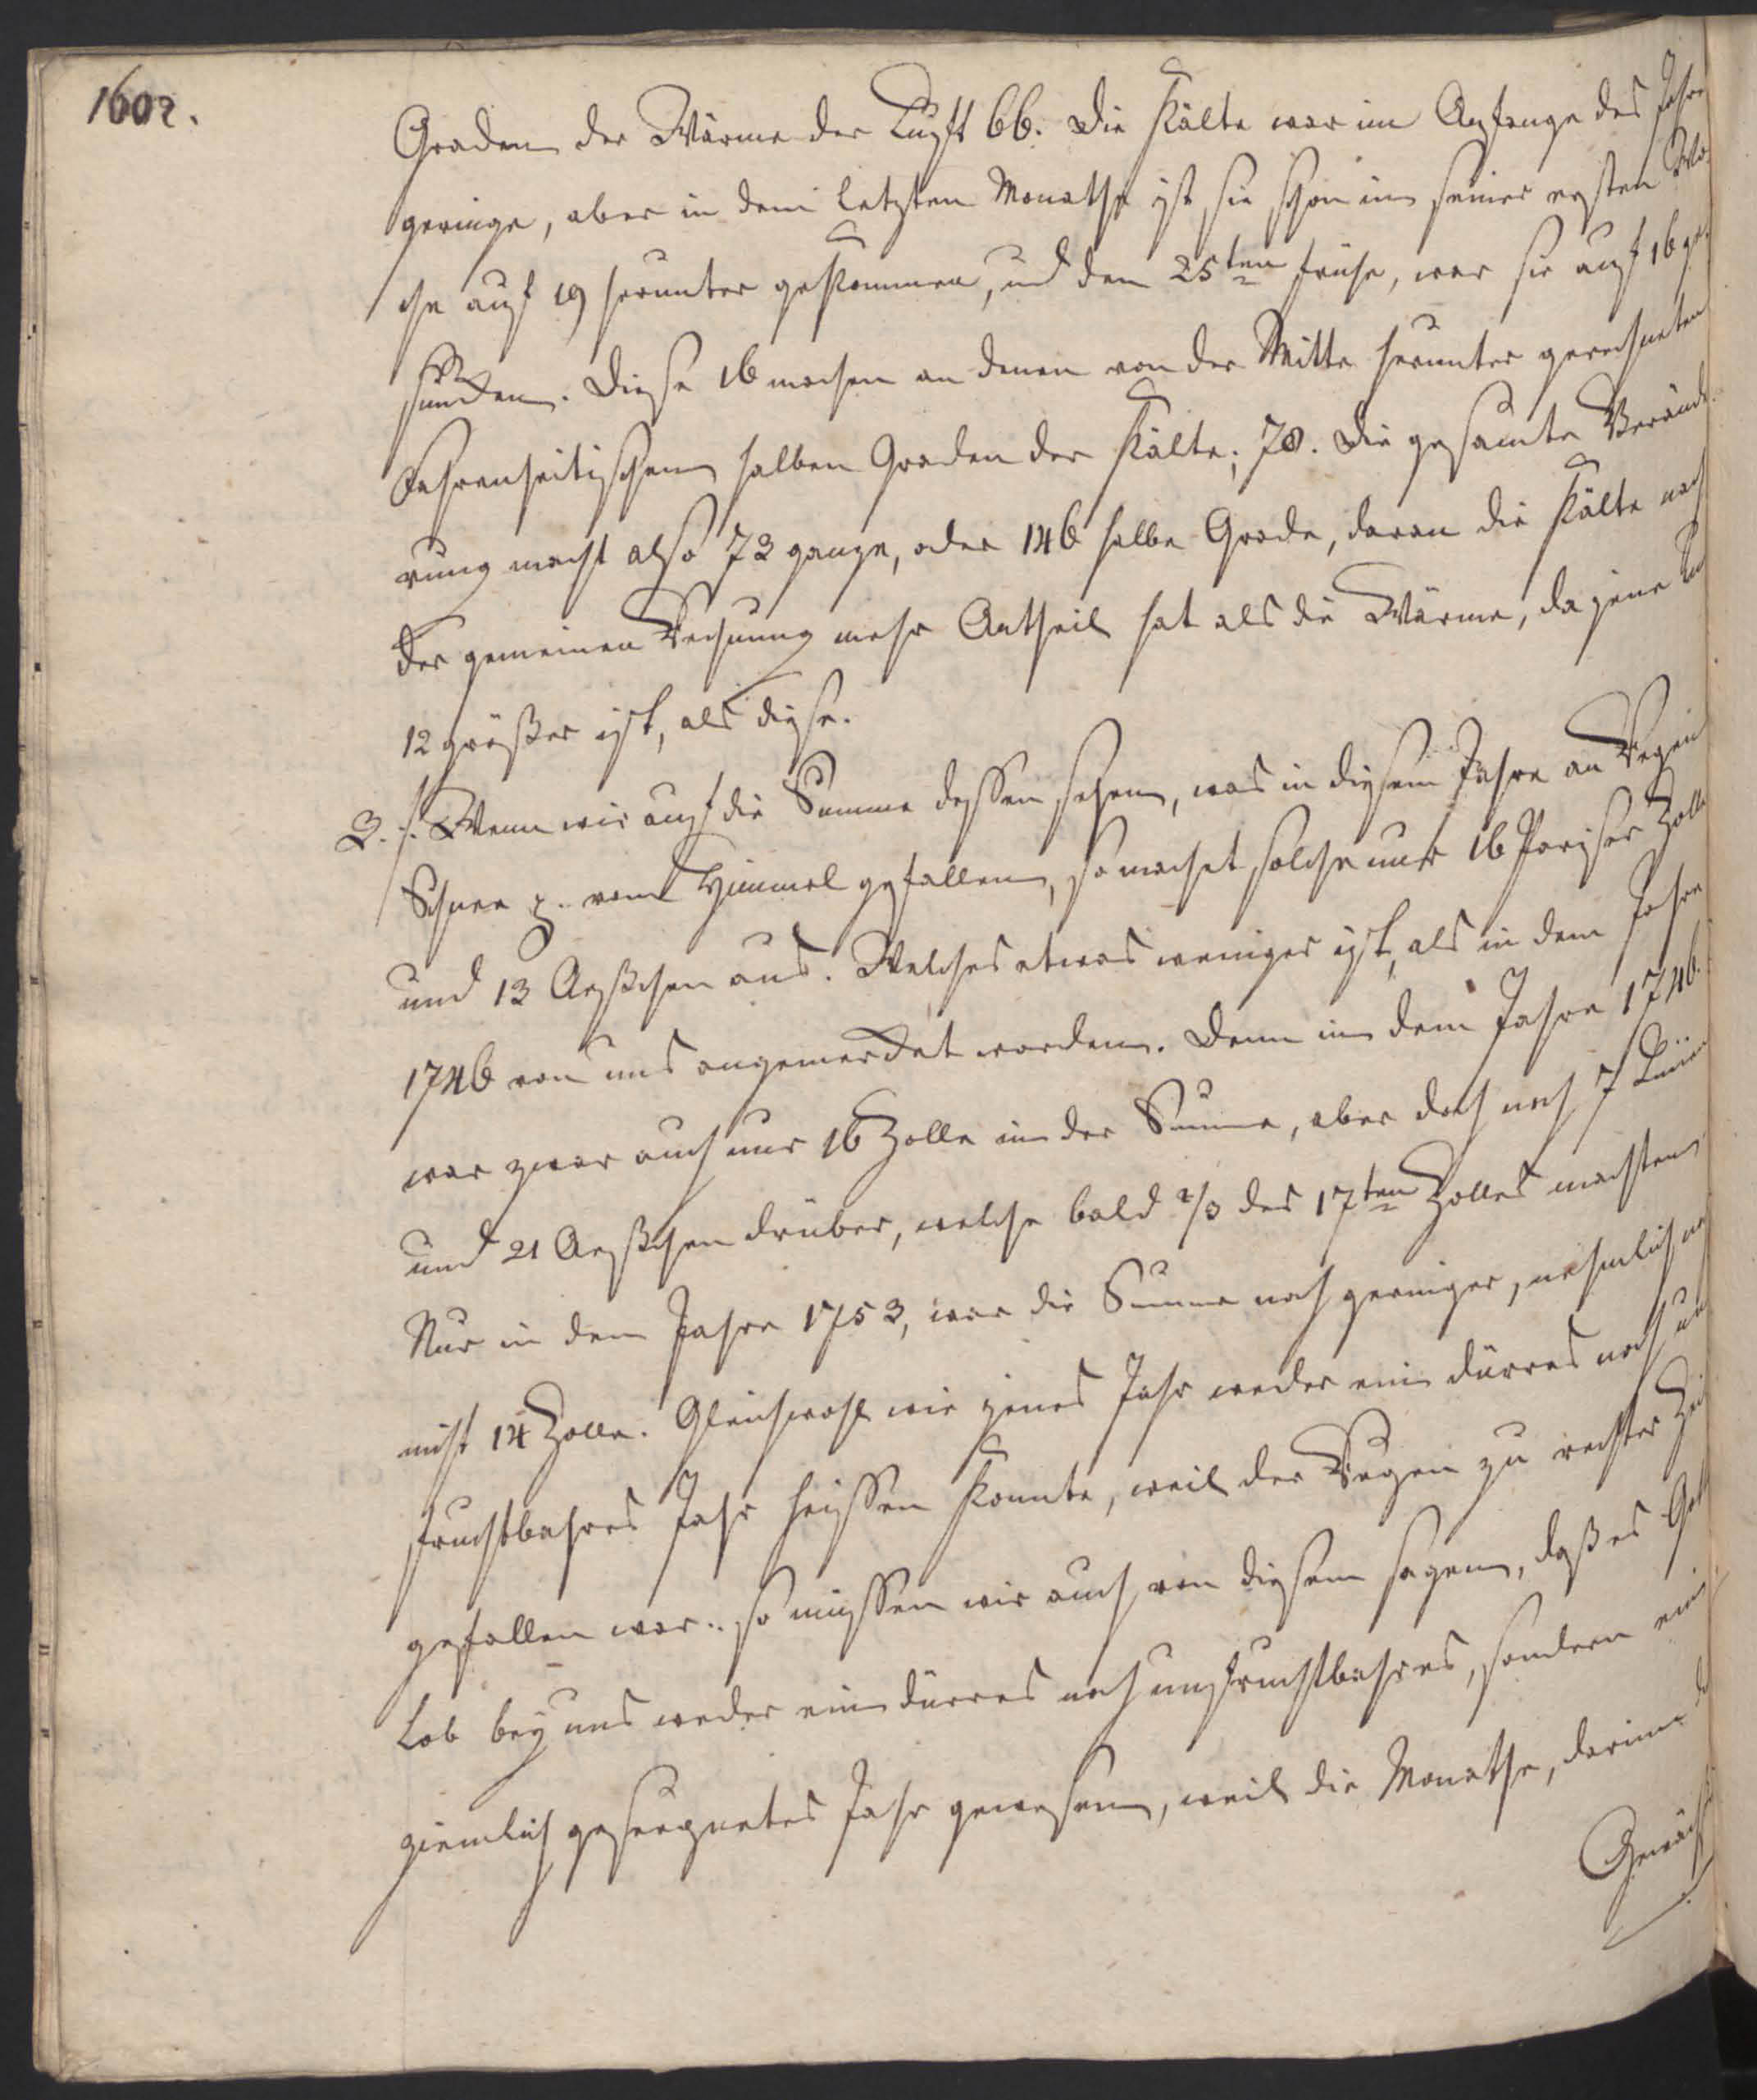 1602.
Graden der Wärme der Luft 66. Die Kälte war im Anfange des Jahrs
geringe, aber in dem letzten Monathe ist sie schon in seiner ersten Wo-
che auf 19 herunter gekommen, und den 25ten frühe, war sie auf 16 ge-
sunken. Diese 16 machen an denen von der Mitte herunter gerechneten
Fahrenheitischen halben Graden der Kälte, 78. Die gesamte Verände-
rung macht also 73 ganze, oder 146 halbe Grade, daran die Kälte nach
der gemeinen Rechnung mehr Antheil hat als die Wärme, da jene um
12 größer ist, als diese.
3.) Wenn wir auf die Summe dessen sehen, was in diesem Jahre an Regen
Schnee p. vom Himmel gefallen, so machet solche nur 16 Pariser Zolle
und 13 Aeßchen aus. Welches etwas weniger ist, als in dem Jahre
1746 von uns angemerket worden. Denn in dem Jahre 1746.
war zwar auch nur 16 Zolle in der Summe, aber doch noch 7 Linien
und 21 Aeßchen drüber, welche bald 2/3 des 17ten Zolles machten
Nur in dem Jahre 1753, war die Summe noch geringer, nehmlich
nicht 14 Zolle. Gleichwohl wie jenes Jahr weder ein dürres noch un
fruchtbahres Jahr heissen konnte, weil der Regen zu rechter Zeit
gefallen war: so müssen wir auch von diesem sagen, daß es Gott
Lob bey uns weder ein dürres noch unfruchtbahres, sondern ein
ziemlich gesegnetes Jahr gewesen, weil die Monathe, darinn
Gewächs